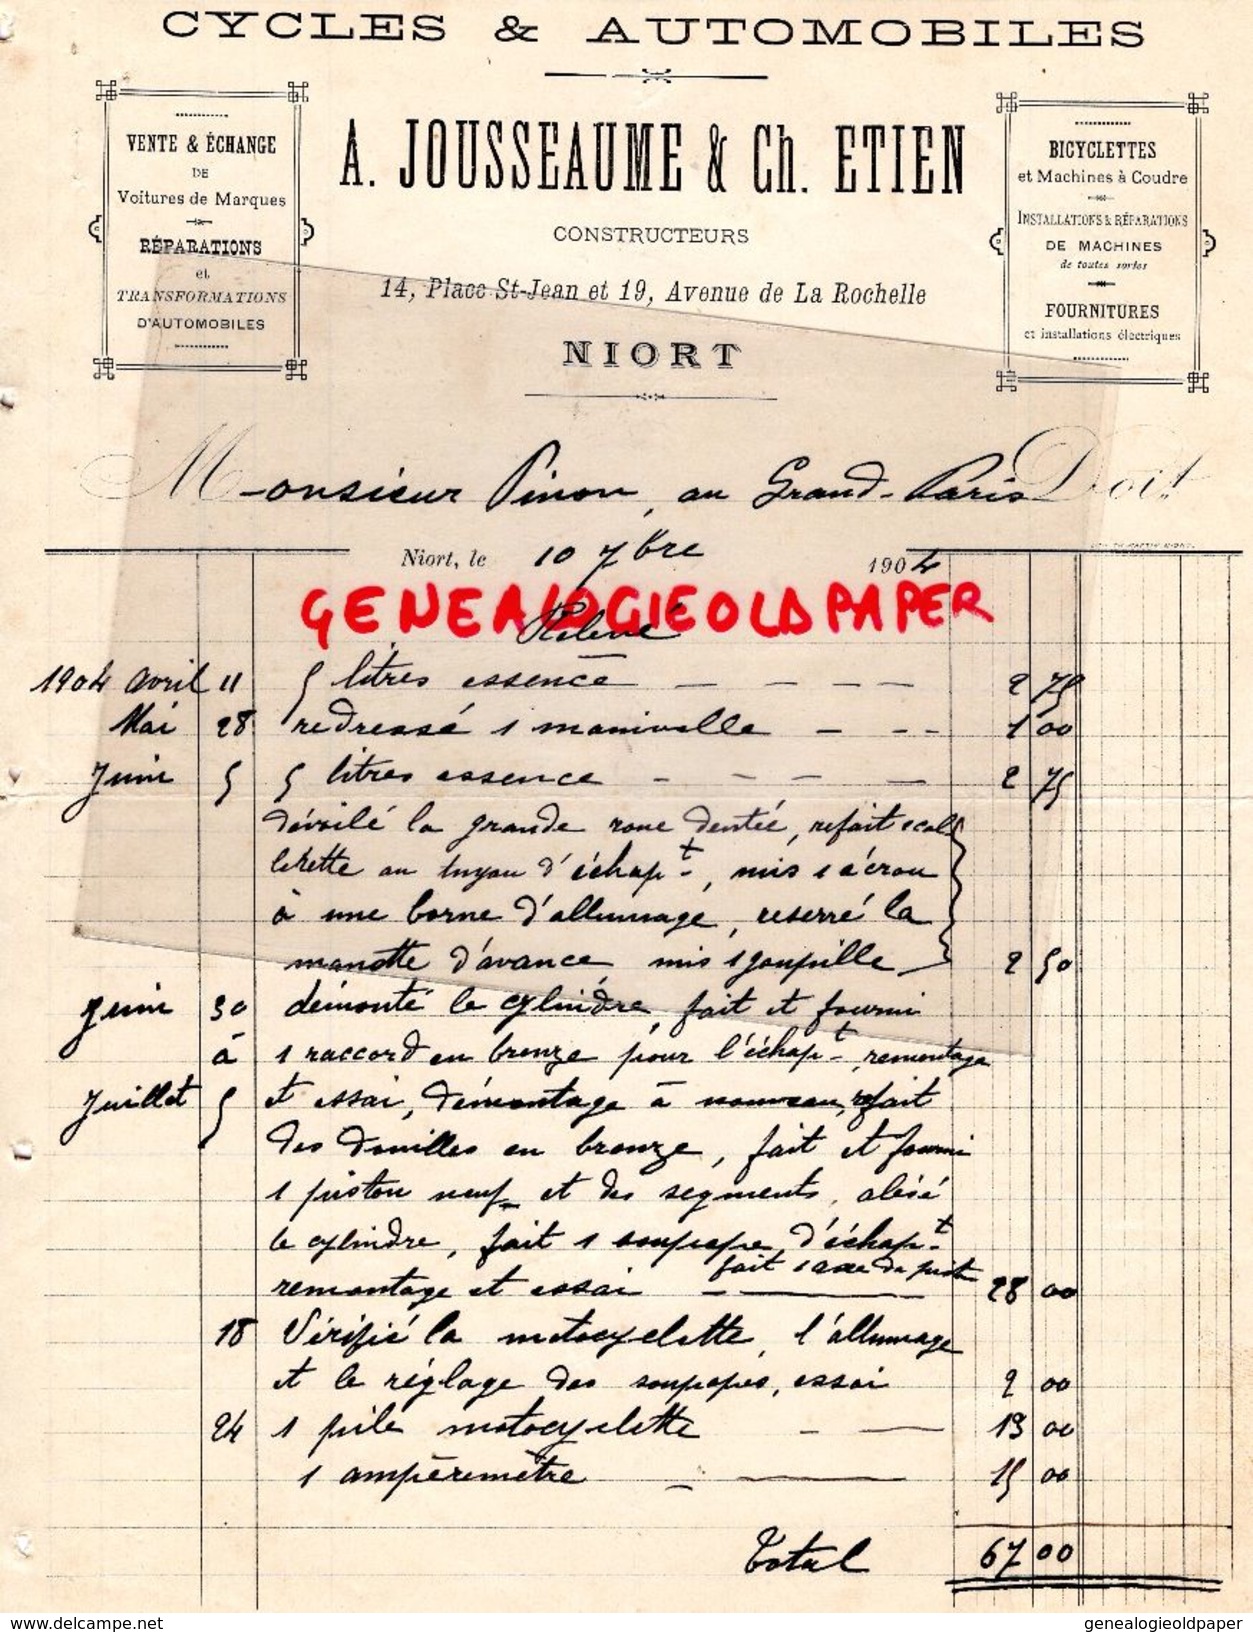 CYCLES & AUTOMOBILES
VENTE & ÉCHANGE
DE
Voitures de Marques
RÉPARATIONS
et
TRANSFORMATIONS
D'AUTOMOBILES
A. JOUSSEAUME & Ch. ETIEN
CONSTRUCTEURS
14, Place St-Jean et 19, Avenue de La Rochelle
NIORT
BICYCLETTES
et Machines à Coudre
INSTALLATIONS & RÉPARATIONS
DE MACHINES
de toutes sortes
FOURNITURES
et installations électriques
Monsieur Pinon, au Grand-Paris Doit
Niort, le 10 7bre 1904
GENEALOGIEOLDPAPER
Relevé
1904 avril 11 5 litres essence 2 75
Mai 28 redressé 1 manivelle 1 00
Juin 5 5 litres essence 2 75
dévoilé la grande roue dentée, refait 1 col
lerette au tuyau d'échapt, mis 1 écrou
à une borne d'allumage, reserré la
manette d'avance, mis 1 goupille 2 50
Juin 30 démonté le cylindre, fait et fourni
à 1 raccord en bronze pour l'échapt, remontage
Juillet 5 et essai, démontage à nouveau, refait
des douilles en bronze, fait et fourni
1 piston neuf et des segments, alésé
le cylindre, fait 1 soupape d'échapt
fait 1 axe de pist
remontage et essai 28 00
18 Vérifié la motocyclette, l'allumage
et le réglage des soupapes, essai 2 00
24 1 pile motocyclette 13 00
1 ampèremètre 15 00
Total 67 00
delcampe.net
genealogieoldpaper